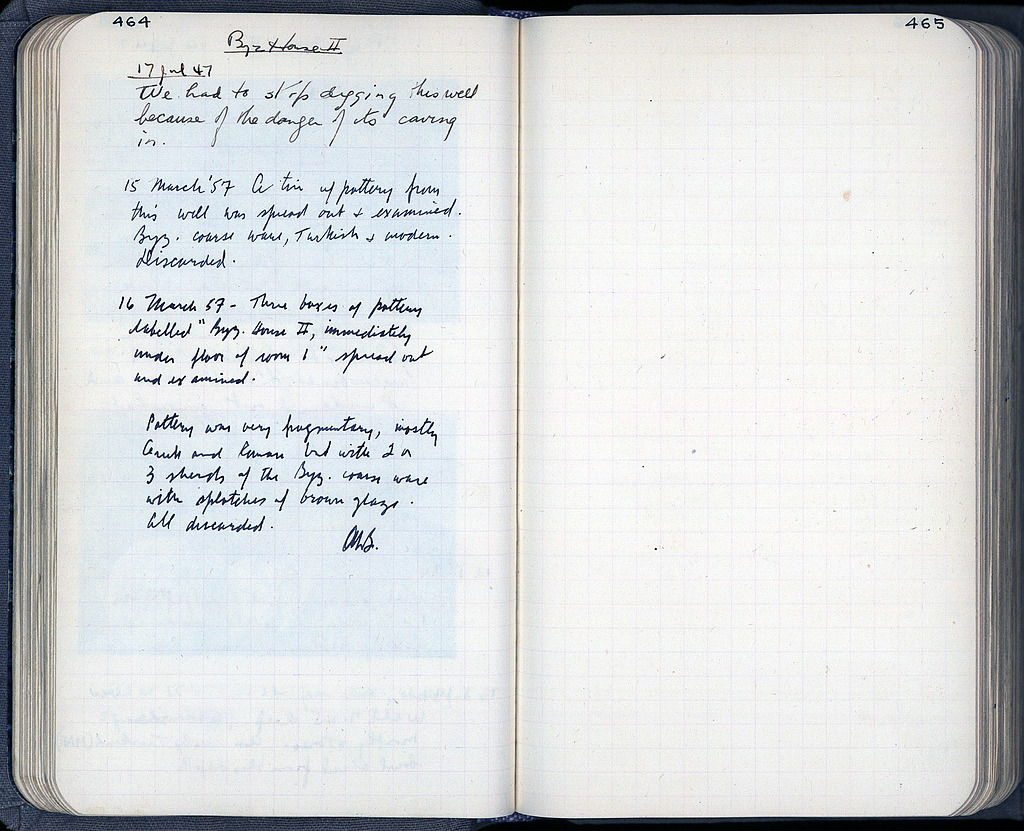 464
Byz House II
17 Jul 47
We had to stop digging this well
because of the danger of its caving
in.
15 March '57 A tin of pottery from
this well was spread out & examined.
Byz. coarse ware, Turkish & modern.
Discarded.
16 March 57 - Three boxes of pottery
labelled "Byz. House II, immediately
under floor of room 1" spread out
and examined.
Pottery was very fragmentary, mostly
Greek and Roman but with 2 or
3 sherds of the Byz. coarse ware
with splotches of brown glaze.
All discarded.
465